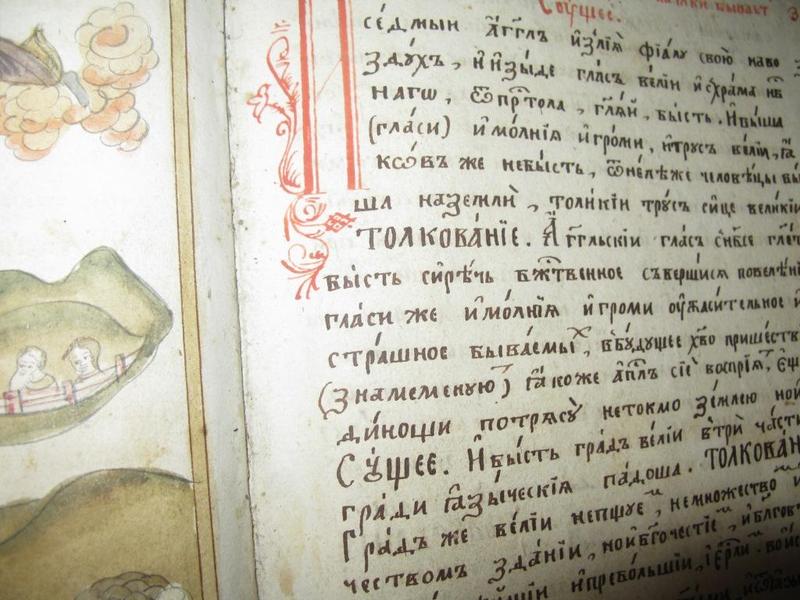 Сꙋ́щее. бывает
се́дмыи а́гг҃лъ и҆злїѧ̀ фїа́лꙋ свою̀ наво
здꙋ́хъ, и҆и҆зы́де гла́съ ве́лїи и҆схра́ма нб҃
наго, ѿпрⷭ҇то́ла, гл҃ѧй, бы́сть. И҆бы́ша
(гла́си) и҆мо́лнїѧ и҆гро́ми, и҆трꙋ́съ ве́лїи, ꙗ҆
ко́въ же небы́сть, ѿне́лѣже человѣ́цы бы́
ша наземлѝ, толи́кїи трꙋ́съ си́це вели́кїи
ТОЛКОВА́НЇЕ. А҆́гг҃льскїи гла́съ
бы́сть си́рѣчь бж҃е́ственное соверши́сѧ повелѣ́нї
гла́си же и҆мо́лнїѧ и҆гро́ми ᲂу҆жаси́телное и҆
стра́шное быва́емыⷯ, вбꙋ́дꙋщее хв҃о прише́ств
(зна́менꙋюⷮ) ꙗ҆́коже а҆пⷭ҇лъ сїѐ воспрїѧ́тъ,
ди́ною потрѧсꙋ̀ нето́кмо зе́млею но и҆
Сꙋ́щее. И҆бы́сть гра́дъ ве́лїи втрѝ ча́сти
гра́ди ꙗ҆зы́ческїѧ падо́ша. ТОЛКОВА́Н
Гра́дъ же ве́лїи непщꙋ́еⷨ, немно́жество
чествомъ зда́нїи, но и҆бл҃гоче́стїеⷨ,
и҆пребо́льшїи, і҆ерⷭ҇ли́м